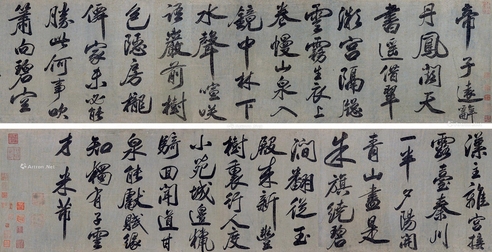 帝子遠辭
丹鳳闕天
書遥借翠
微宮隔窓
雲霧生衣上
卷幔山泉入
鏡中林下
水聲喧笑
語巖前樹
色隱房櫳
僊家未必能
勝此何事吹
簫向碧空
漢主離宮接
露臺秦川
一半夕陽開
青山盡是
朱旗繞碧
澗翻從玉
殿來新豐
樹裏行人度
小苑城邊獵
騎回聞道甘
泉能獻賦懸
知獨有子雲
才 米芾